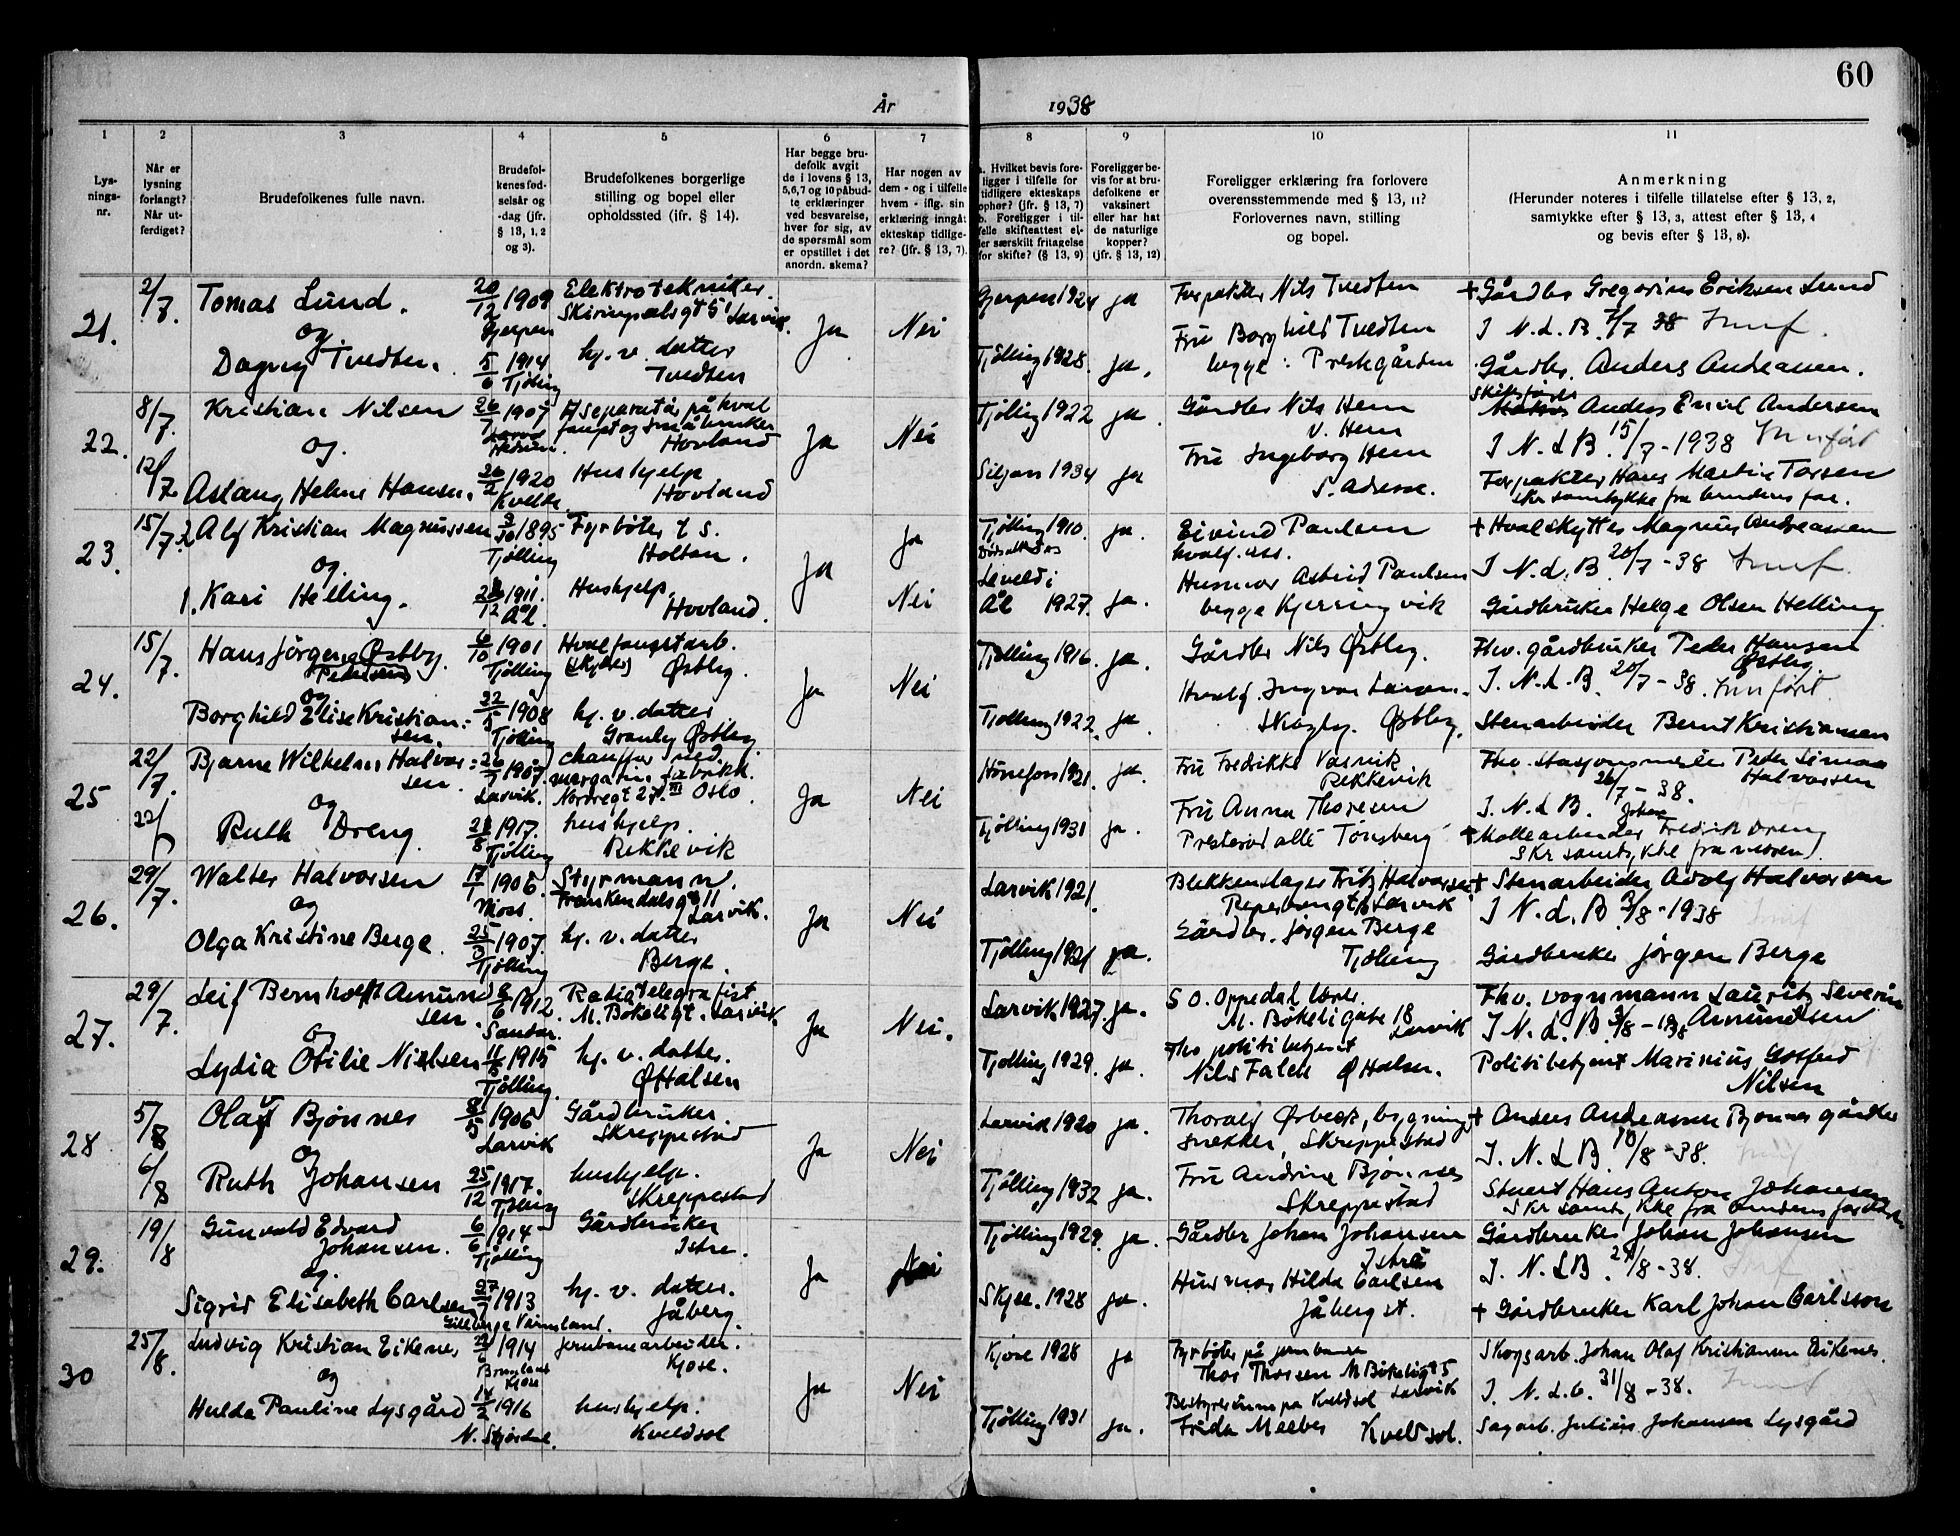 60
År 1938
1
2
3
4
5
6
7
8
9
10
11
Lys-
nings-
nr.
Når er
lysning
forlangt?
Når ut-
ferdiget?
Brudefolkenes fulle navn.
Brudefol-
kenes fød-
selsår og
-dag (jfr.
§ 13, 1, 2
og 3).
Brudefolkenes borgerlige
stilling og bopel eller
opholdssted (ifr. § 14).
Har begge bru-
defolk avgit
de i lovens § 13,
5,6,7 og 10 påbud-
te erklæringer
ved besvarelse,
hver for sig, av
de spørsmål som
er opstillet i det
anordn. skema?
Har nogen av
dem - og i tilfelle
hvem - iflg. sin
erklæring inngåt
ekteskap tidlige-
re? (jfr. § 13, 7).
a. Hvilket bevis fore-
ligger i tilfelle for
tidligere ekteskaps
ophør? (jfr. § 13, 7)
b. Foreligger i til-
felle skifteattest el-
ler særskilt fritagelse
for skifte? (§ 13, 9)
Foreligger be-
vis for at bru-
defolkene er
vaksinert
eller har hat
de naturlige
kopper?
(jfr. § 13, 12)
Foreligger erklæring fra forlovere
overensstemmende med § 13, 11?
Forlovernes navn, stilling
og bopel.
Anmerkning
(Herunder noteres i tilfelle tillatelse efter § 13, 2,
samtykke efter § 13, 3, attest efter § 13, 4
og bevis efter § 13, 8).
21.
2/7.
Tomas Lund.
og
Dagny Tvedten.
20/12 1909
Gjerpen
5/6 1914
Tjølling
Elektrotekniker.
Skiringsalsgt 5 Larvik.
hj. v. datter
Tvedten
Ja
Nei
Gjerpen 1924 ja
Tjølling 1928. ja.
Forpakter Nils Tvedten
Fru Borghild Tvedten
begge: Prestegården
+ Gårdbr Gregorius Eriksen Lund
I N. L. B. 7/7 38
Gårdbr. Anders Andreassen.
22.
8/7.
12/7
Kristian Nilsen
og.
Aslaug Helene Hansen.
26/7 1907
Hedrum.
26/2 1920
Kvelde
Separatør på hval
fangst og småbruker
Hovland
Hushjelp
Hovland
Ja
Nei
Tjølling 1922 ja.
Siljan 1934 ja
Gårdbr Nils Hem
v. Hem
Fru Ingeborg Hem
S. adresse.
Skibsfører
Anders Emil Andersen
I N. L B. 15/7 - 1938 Innført
Forpakter Hans Martin Tarsen
skr samtykke fra brudens far.
23.
15/7.
2 Alf Kristian Magnussen
og.
1. Kari Helling.
3/10 1895
Tjølling
28/12 1911.
Ål.
Fyrbøter t S.
Holtan.
Hushjelp.
Hovland.
Ja
ja
Nei
Tjølling 1910. ja.
Dødsattest
Leveld i
Ål 1927. ja.
Eivind Paulsen
hvalf. ass.
Husmor Astrid Paulsen
begge Kjerringvik
+ Hvalskytter Magnus Andreassen
I N. L. B. 20/7 - 38
Gårdbruker Helge Olsen Helling
24.
15/7.
Hans Jørgen Østby.
Pedersen
og
Borghild Elise Kristian-
sen.
6/10 1901
Tjølling
22/5 1908
Tjølling
Hvalfangstarb.
(skytter) Østby.
hj. v. datter
Granly Østby.
Ja
Nei
Tjølling 1916. ja.
Tjølling 1922. ja.
Gårdbr Nils Østby.
Hvalf. Ingvar Larsen.
Skogly. Østby.
Fhv. gårdbruker Peder Hansen
Østby.
I. N. L. B. 20/7 - 38. Innført
Stenarbeider Bernt Kristiansen
25
22/7.
22/7
Bjarne Wilhelm Halvor-
sen.
og
Ruth Dreng
26/7 1907.
Larvik.
28/8 1917.
Tjølling
chauffør ved
margarinfabrikk.
Nordregt 27 III Oslo.
hushjelp.
Rekkevik
Ja
Nei
Hønefoss 1921. ja.
Tjølling 1931 ja.
Fru Fredrikke Varvik
Rekkevik
Fru Anna Thoresen
Presterød allé Tønsberg
Fhv. stasjonsmester Peder Simon
Halvorsen
I. N. L B. 26/7 - 38.
+ Møllearbeider Johan Fredrik Dreng
Skr samtykke fra moren.
26.
29/7.
Walter Halvorsen
og
Olga Kristine Berge.
17/1 1906.
Moss.
25/3 1907.
Tjølling
Styrmann.
Frankendalsgt 11
Larvik.
hj. v. datter
Berge.
Ja
Nei
Larvik 1921.
Tjølling 1921 ja.
Blikkenslager Fritz Halvorsen
Reperbangt Larvik
Gårdbr. Jørgen Berge
Tjølling
+ Stenarbeider Adolf Halvorsen
I N. L. B 3/8 - 1938
Gårdbruker Jørgen Berge
27.
29/7.
Leif Bernhoft Amund-
sen.
og
Lydia Otilie Nielsen
8/6 1912.
Sandar.
11/5 1915
Tjølling.
Radiotelegrafist
M. Bøkeligt. Larvik.
hj. v. datter.
Ø Halsen
Ja
Nei.
Larvik 1927. ja.
Tjølling 1929. ja.
S O. Oppedal lærer.
M. Bøkeligate 18
Larvik
Fhv politibetjent
Nils Falck Ø Halsen.
Fhv. vognmann Lauritz Severin
Amundsen
I N. L. B 3/8 - 1938
Politibetjent Marinius Gotfred
Nilsen
28
5/8
6/8
Olaf Bjønnes
og
Ruth Johansen
8/5 1906
Larvik
25/12 1917.
Tjølling
Gårdbruker.
Skreppestad
hushjelp.
Skreppestad
Ja
Nei
Larvik 1920 ja.
Tjølling 1932 ja.
Thorolf Ørbeck, bygnings
snekker, Skreppestad
Fru Andrine Bjønnes
Skreppestad
+ Anders Andreassen Bjønnes gårdbr
I. N. L B. 10/8 - 38.
Stuert Hans Anton Johansen
Skr samtykke fra brudens foreldre
29.
19/8
Gunvald Edvard
Johansen.
og.
Sigrid Elisabeth Carlsen
6/6 1914
Tjølling
27/7 1913
Gillberga Värmland.
Gårdbruker
Istre.
hj. v. datter.
Jåberg.
Ja
Nei
Tjølling 1929. ja.
Skjee. 1928 ja.
Gårdbr Johan Johansen
Istre
Husmor Hilda Carlsen
Jåberg st.
Gårdbruker Johan Johansen
I. N. L B. 24/8 - 38.
+ Gårdbruker Karl Johan Carlsson
30
25/8.
Ludvig Kristian Eikenes
og
Hulda Pauline Lysgård
1914
Brunlanes
Kjose
14/2 1916
N. Stjørdal.
Jernbanearbeider.
Kjose.
hushjelp.
Kveldsol
Ja
Nei
Kjose 1928 ja
Tjølling 1931 ja.
Fyrbøter på jernbanen
Thor Thorsen M Bøkeligt 5
Larvik
Bestyrerinne på Kveldsol
Frida Melbey Kveldsol.
Skogsarb. Johan Olaf Kristiansen Eikenes.
I. N. L. B. 31/8 - 38.
Sagarb. Julius Johansen Lysgård